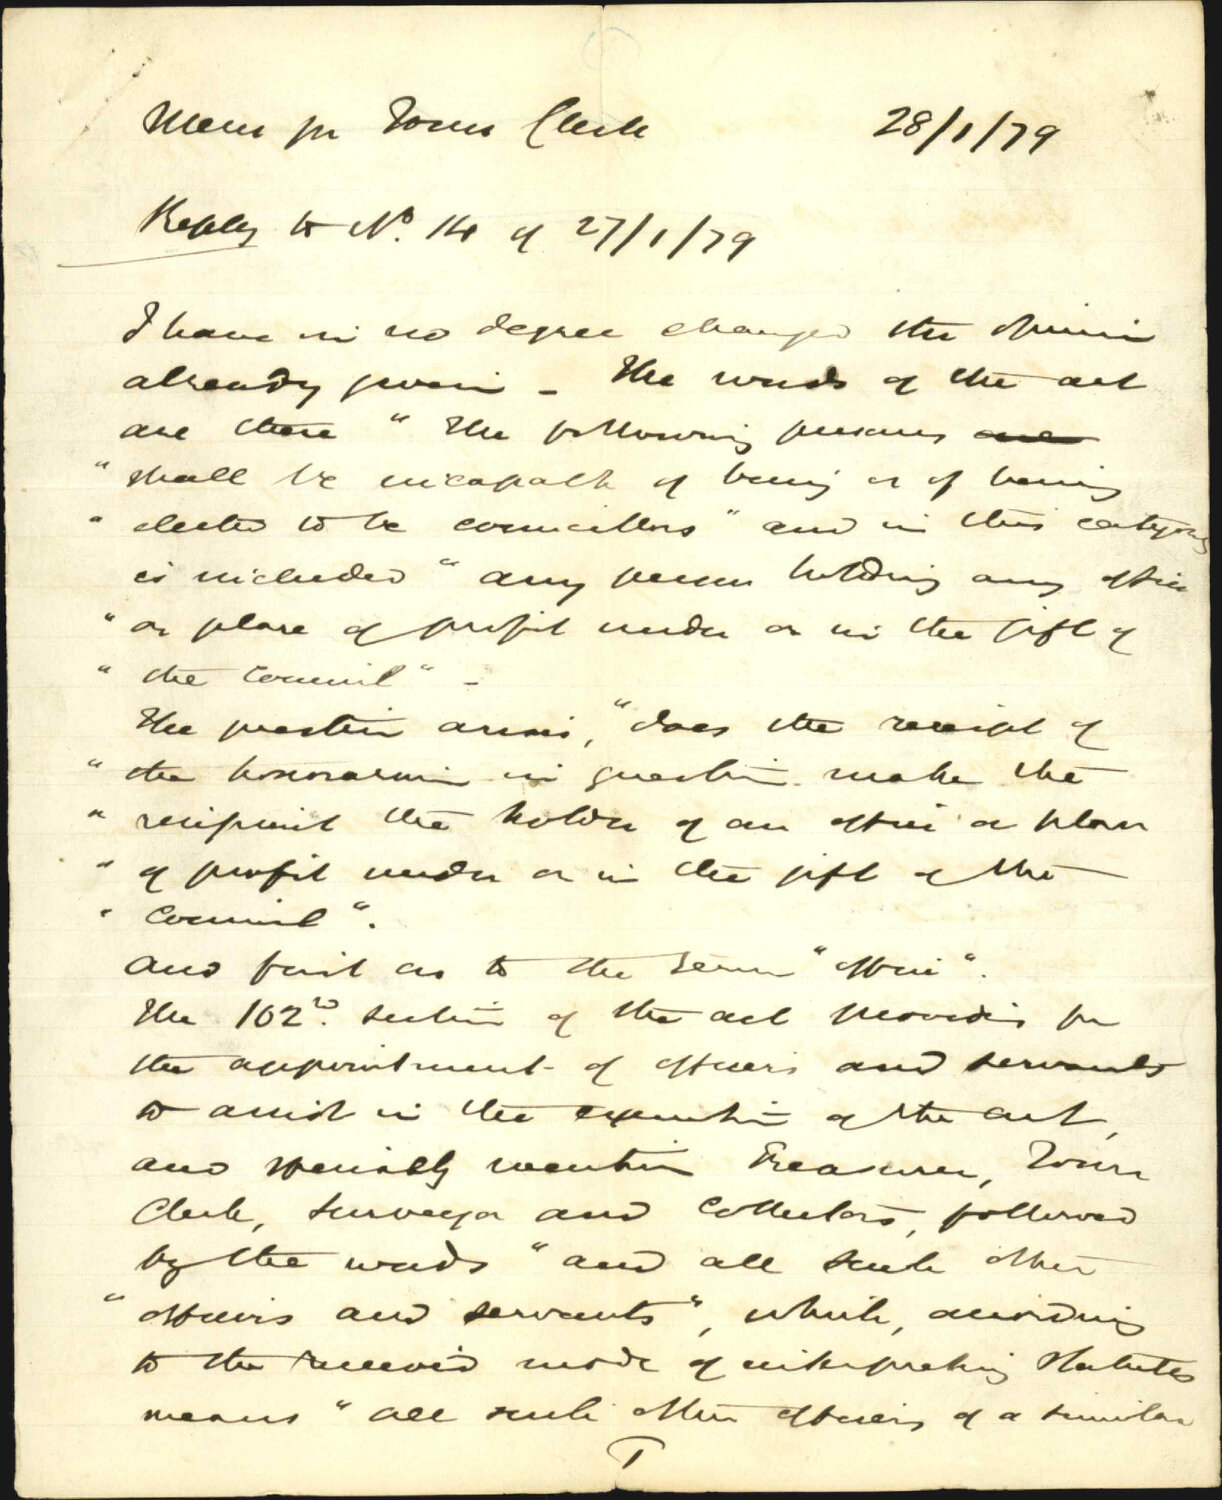 Memo for Town Clerk 28/1/79
Reply to No. 14 of 27/1/79
I have in no degree changed the opinion
already given - The words of the act
are these "The following persons are
"shall be incapable of being or of being
"elected to be councillors" and in this category
is included "any person holding any office
"or place of profit under or in the gift of
"the Council" -
The question arises, "does the receipt of
"the honorarium in question make the
"recipient the holder of an office or place
"of profit under or in the gift of the
"Council".
and first as to the term "office".
The 102nd. section of the act provides for
the appointment of officers and servants
to assist in the execution of the act,
and specially mention Treasurer, Town
Clerk, Surveyor and Collectors, followed
by the words "and all such other
"officers and servants", which, according
to the received mode of interpreting Statutes
means "all such other officers of a similar
1